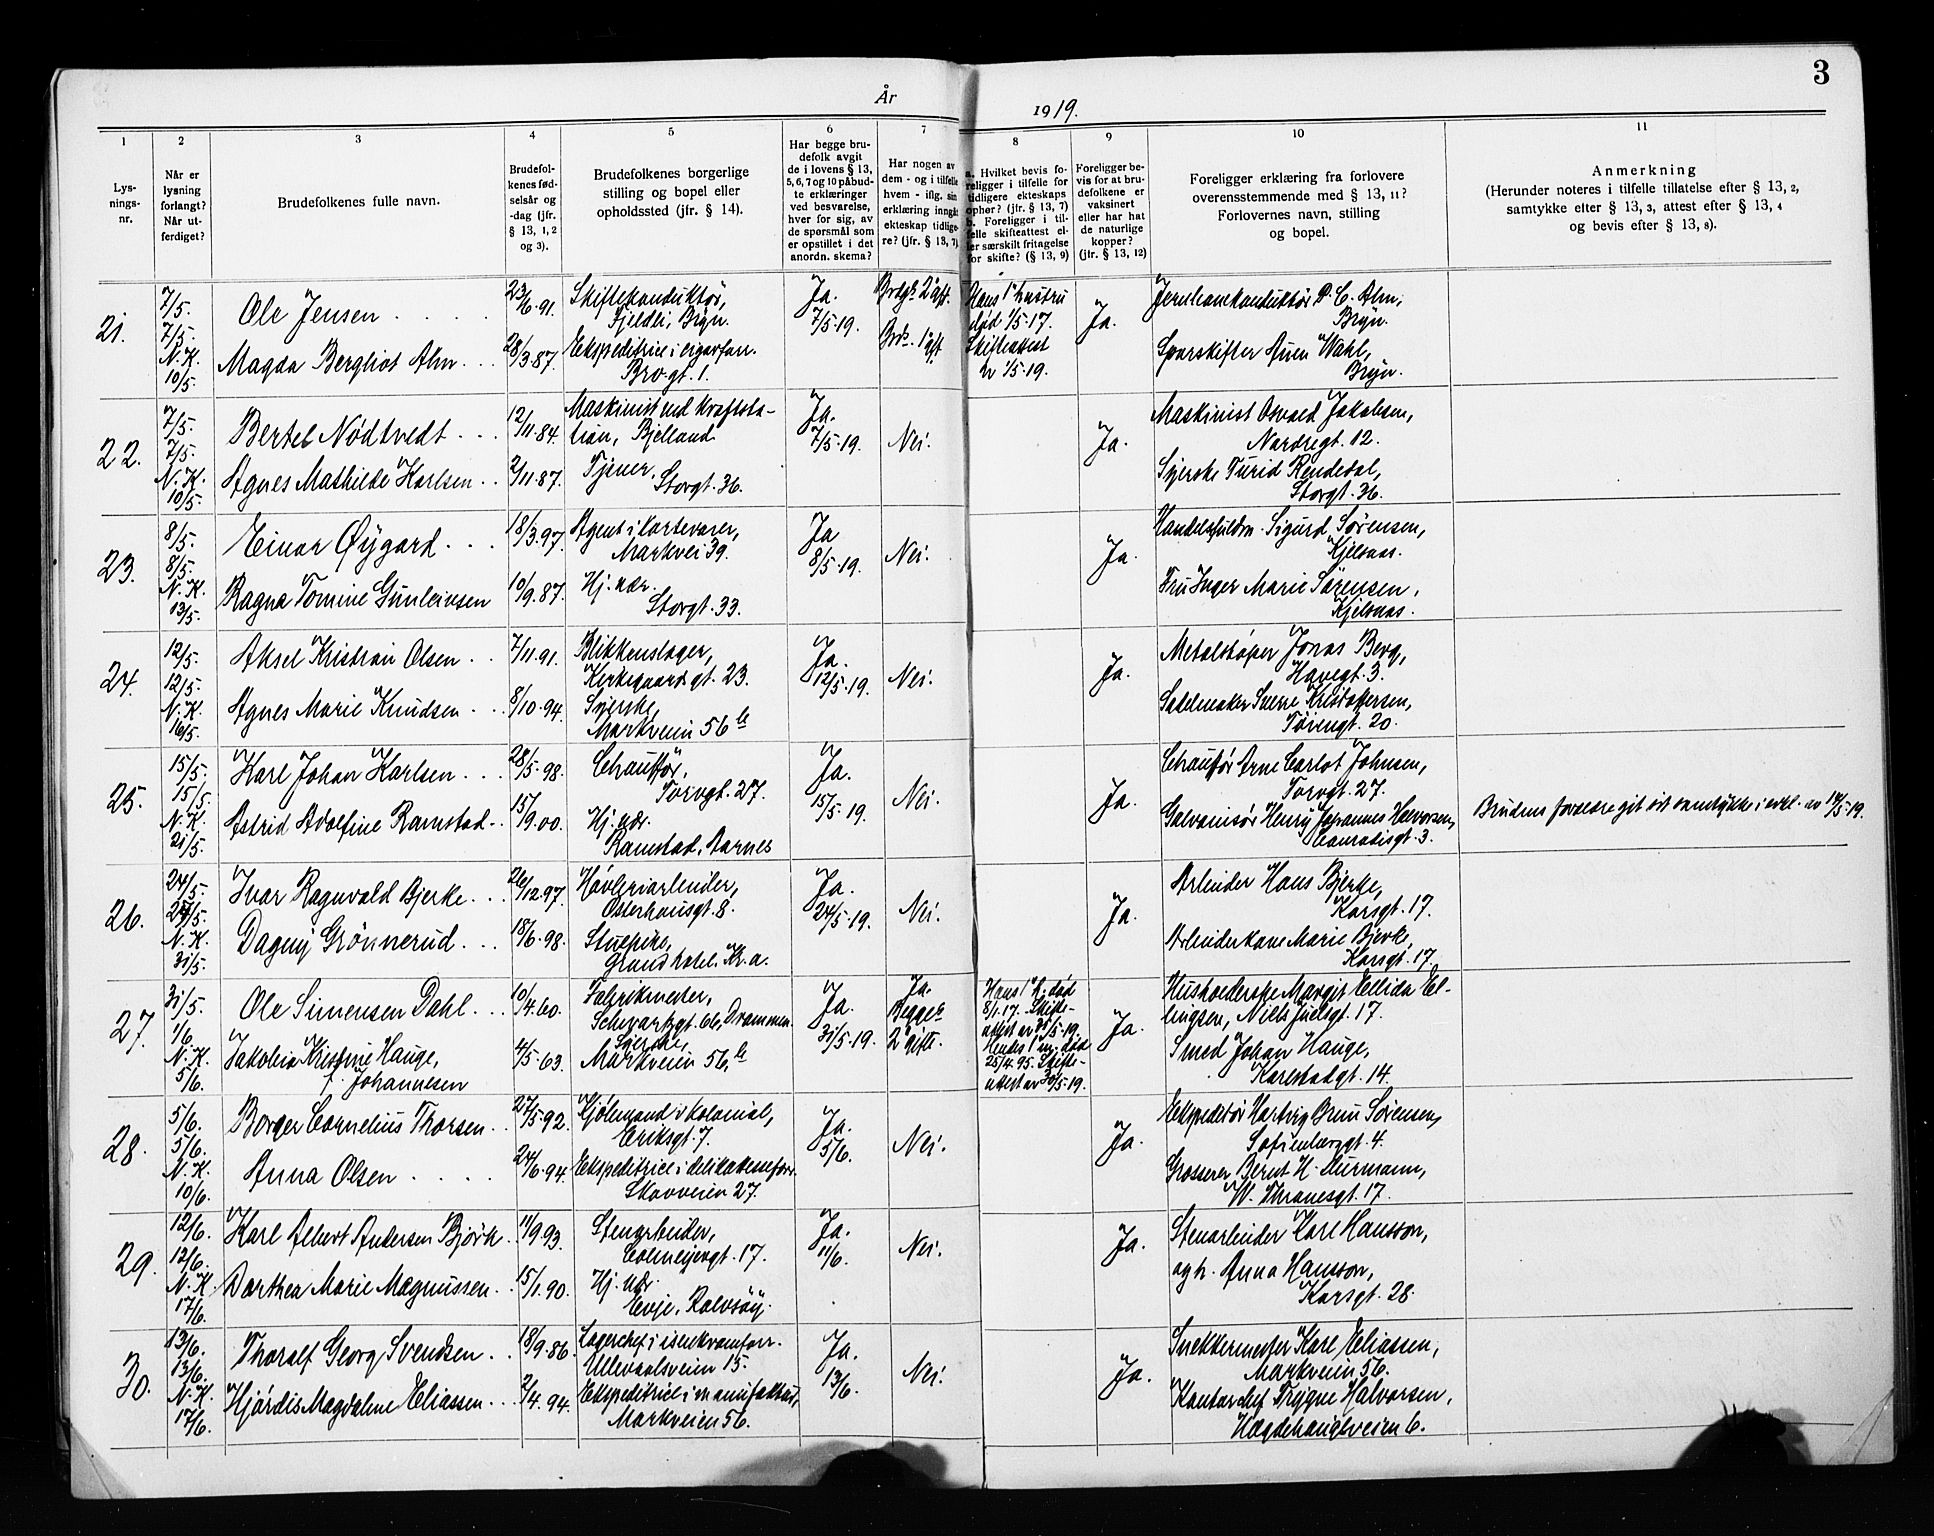 3
År 1919.
1 2 3 4 5 6 7 8 9 10 11
Lys-
nings-
nr.
Når er
lysning
forlangt?
Når ut-
ferdiget?
Brudefolkenes fulle navn.
Brudefol-
kenes fød-
selsår og
-dag (jfr.
§ 13, 1, 2
og 3).
Brudefolkenes borgerlige
stilling og bopel eller
opholdssted (jfr. § 14).
Har begge bru-
defolk avgit
de i lovens § 13,
5, 6, 7 og 10 påbud-
te erklæringer
ved besvarelse,
hver for sig, av
de spørsmål som
er opstillet i det
anordn. skema?
Har nogen av
dem - og i tilfelle
hvem - iflg. sin
erklæring inngåt
ekteskap tidlige-
re? (jfr. § 13, 7).
a. Hvilket bevis fo-
religger i tilfelle for
tidligere ekteskaps
ophør? (jfr. § 13, 7)
b. Foreligger i til-
felle skifteattest el-
ler særskilt fritagelse
for skifte? (§ 13, 9)
Foreligger be-
vis for at bru-
defolkene er
vaksinert
eller har hat
de naturlige
kopper?
(jfr. § 13, 12)
Foreligger erklæring fra forlovere
overensstemmende med § 13, 11?
Forlovernes navn, stilling
og bopel.
Anmerkning
(Herunder noteres i tilfelle tillatelse efter § 13, 2,
samtykke efter § 13, 3, attest efter § 13, 4
og bevis efter § 13, 8).
21.
7/5.
7/5.
N.K.
10/5.
Ole Jensen
Magda Bergliot Alm
23/6.91.
28/3.87.
Skiftekonduktør,
Fjeldli, Bryn.
Ekspeditrice i cigarforr.
Brogt. 1.
Ja.
7/5.19.
Brdg. 2 gft.
Brd. 1 gft.
Hans 1ste hustru
død 1/5.17.
Skifteattest
av 1/5.19.
Ja.
Jernbanekonduktør P. C. Alm,
Bryn.
Sporskifter Wahl,
Bryn.
22.
7/5.
7/5.
N.K.
10/5.
Bertel Nödtvedt
Agnes Mathilde Karlsen
12/11.84.
2/11.87.
Maskinist ved kraftsta-
tion, Bjelland
Tjener,
Storgt. 36.
Ja.
7/5.19.
Nei.
Ja.
Maskinist Osvald Jakobsen,
Nordregt. 12.
Syerske Turid Rendedal,
Storgt. 36.
23.
8/5.
8/5.
N.K.
13/5.
Einar Øygard
Ragna Tomine Gunleivsen
18/3.97.
10/9.87.
Agent i kortevarer,
Markvei 39.
Hj. vær.
Storgt. 33.
Ja
8/5.19.
Nei.
Ja.
Handelsfuldm. Sigurd Sørensen,
Kjelsaas.
Fru Inger Marie Sørensen,
Kjelsaas.
24.
12/5.
12/5.
N.K.
16/5.
Aksel Kristian Olsen
Agnes Marie Knudsen
7/11.91.
8/10.94.
Blikkenslager,
Kirkegaardsgt. 23.
Syerske,
Markveien 56 b
Ja.
12/5.19.
Nei.
Ja.
Metalstøper Jonas Berg,
Havegt. 3.
Salelmaker Sverre Kristoffersen,
Tøiengt. 20.
25.
15/5.
15/5.
N.K.
21/5.
Karl Johan Karlsen
Astrid Adolfine Ramstad
28/5.98.
15/9.00.
Chauffør,
Torvgt. 27.
Hj. vær.
Ramstad, Aarnes
Ja.
15/5.19.
Nei.
Ja.
Chauffør Arne Carlot Johnsen,
Torvgt. 27.
Galvanisør Henry Johannes Halvorsen,
Conradisgt. 3.
Brudens foreldre git sit samtykke i erkl. av 14/5.19.
26.
24/5.
24/5.
N.K.
31/5.
Ivar Ragnvald Bjerke
Dagny Grönnerud
26/12.97.
18/6.98.
Høvleriarbeider,
Osterhausgt. 8.
Stuepike,
Grand hotel. Kr.a.
Ja.
24/5.19.
Nei.
Ja.
Arbeider Hans Bjerke,
Korsgt. 17.
Arbeiderkone Marie Bjerke,
Korsgt. 17.
27.
31/5.
1/6.
N.K.
5/6.
Ole Simensen Dahl
Jakobia Kristine Hauge,
f. Johannesen
10/4.60.
4/5.63.
Fabrikmester,
Schwartzgt. 66, Drammen.
Syerske,
Markveien 56 b
Ja.
31/5.19.
Ja.
Begge
2 gifte.
Hans 1ste h. død
8/1.17. Skifte-
attest av 31/5.19.
Hendes 1ste m. død
25/4.95. Skifte-
attest av 30/5.19.
Ja.
Husholderske Margit Ellida El-
lingsen, Niels Juelsgt. 17.
Smed Johan Hauge,
Karlstadgt. 14.
28.
5/6.
5/6.
N.K.
10/6.
Borger Cornelius Thorsen
Anna Olsen
27/5.92.
24/6.94.
Kjøbmand i kolonial,
Eriksgt. 7.
Ekspeditrice i delikatesseforr.
Skovveien 27.
Ja.
5/6.
Nei.
Ja.
Ekspeditør Hartvig Bruu Sørensen,
Sofienberggt. 4.
Grosserer Bernt H. Durmann,
W. Thranesgt. 17.
29.
12/6.
12/6.
N.K.
17/6.
Karl Albert Andersen Bjørk
Dorthea Marie Magnussen
11/9.93.
15/1.90.
Stenarbeider,
Colmeijergt. 17.
Hj. vær.
Evje, Rolvsøy.
Ja.
11/6.
Nei.
Ja.
Stenarbeider Karl Hansson,
og h. Anna Hansson,
Korsgt. 28.
30.
13/6.
13/6.
N.K.
17/6.
Thoralf Georg Svendsen
Hjördis Magdalene Eliassen
18/9.86.
2/4.94.
Lagerchef i isenkramforr.
Ullevaalsveien 15.
Ekspeditrice i manufaktur,
Markveien 56.
Ja.
13/6.
Nei.
Ja.
Snekkermester Karl Eliassen,
Markveien 56.
Kontorchef Trygve Halvorsen,
Hægdehaugsveien 6.